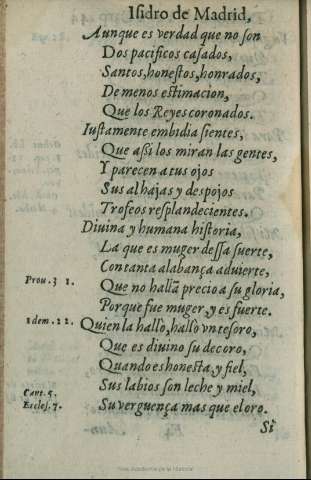 Isidro de Madrid,
Aunque es verdad que no son
Dos pacificos casados,
Santos, honestos, honrados,
De menos estimacion,
Que los Reyes coronados.
Iustamente embidia sientes,
Que assi los miran las gentes,
Y parecen a tus ojos
Sus alhajas y despojos
Trofeos resplandecientes.
Divina y humana historia,
La que es muger dessa suerte,
Con tanta alabança advierte,
Prou. 31. Que no hallã precio a su gloria,
Porque fue muger, y es fuerte.
Idem. 12. Quien la hallò, hallò vn tesoro,
Que es divino su decoro,
Quando es honesta, y fiel,
Cant. 5. Sus labios son leche y miel,
Eccles. 7. Su verguença mas que el oro.
Si
Real Academia de la Historia